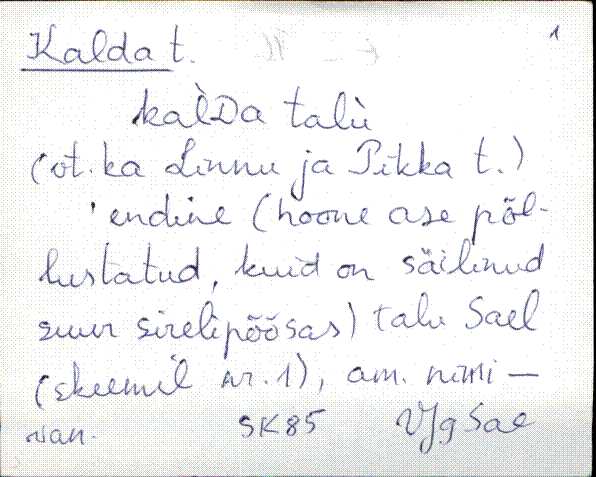 1
Kalda t.
kal̀Da talù
(vt. ka Linnu ja Pikka t.)
'endine (hoone ase põl-
lustatud, kuid on säilinud
suur sirelipõõsas) talu Sael
(skeemil nr. 1), am. nimi —
van. SK85 VJg Sae